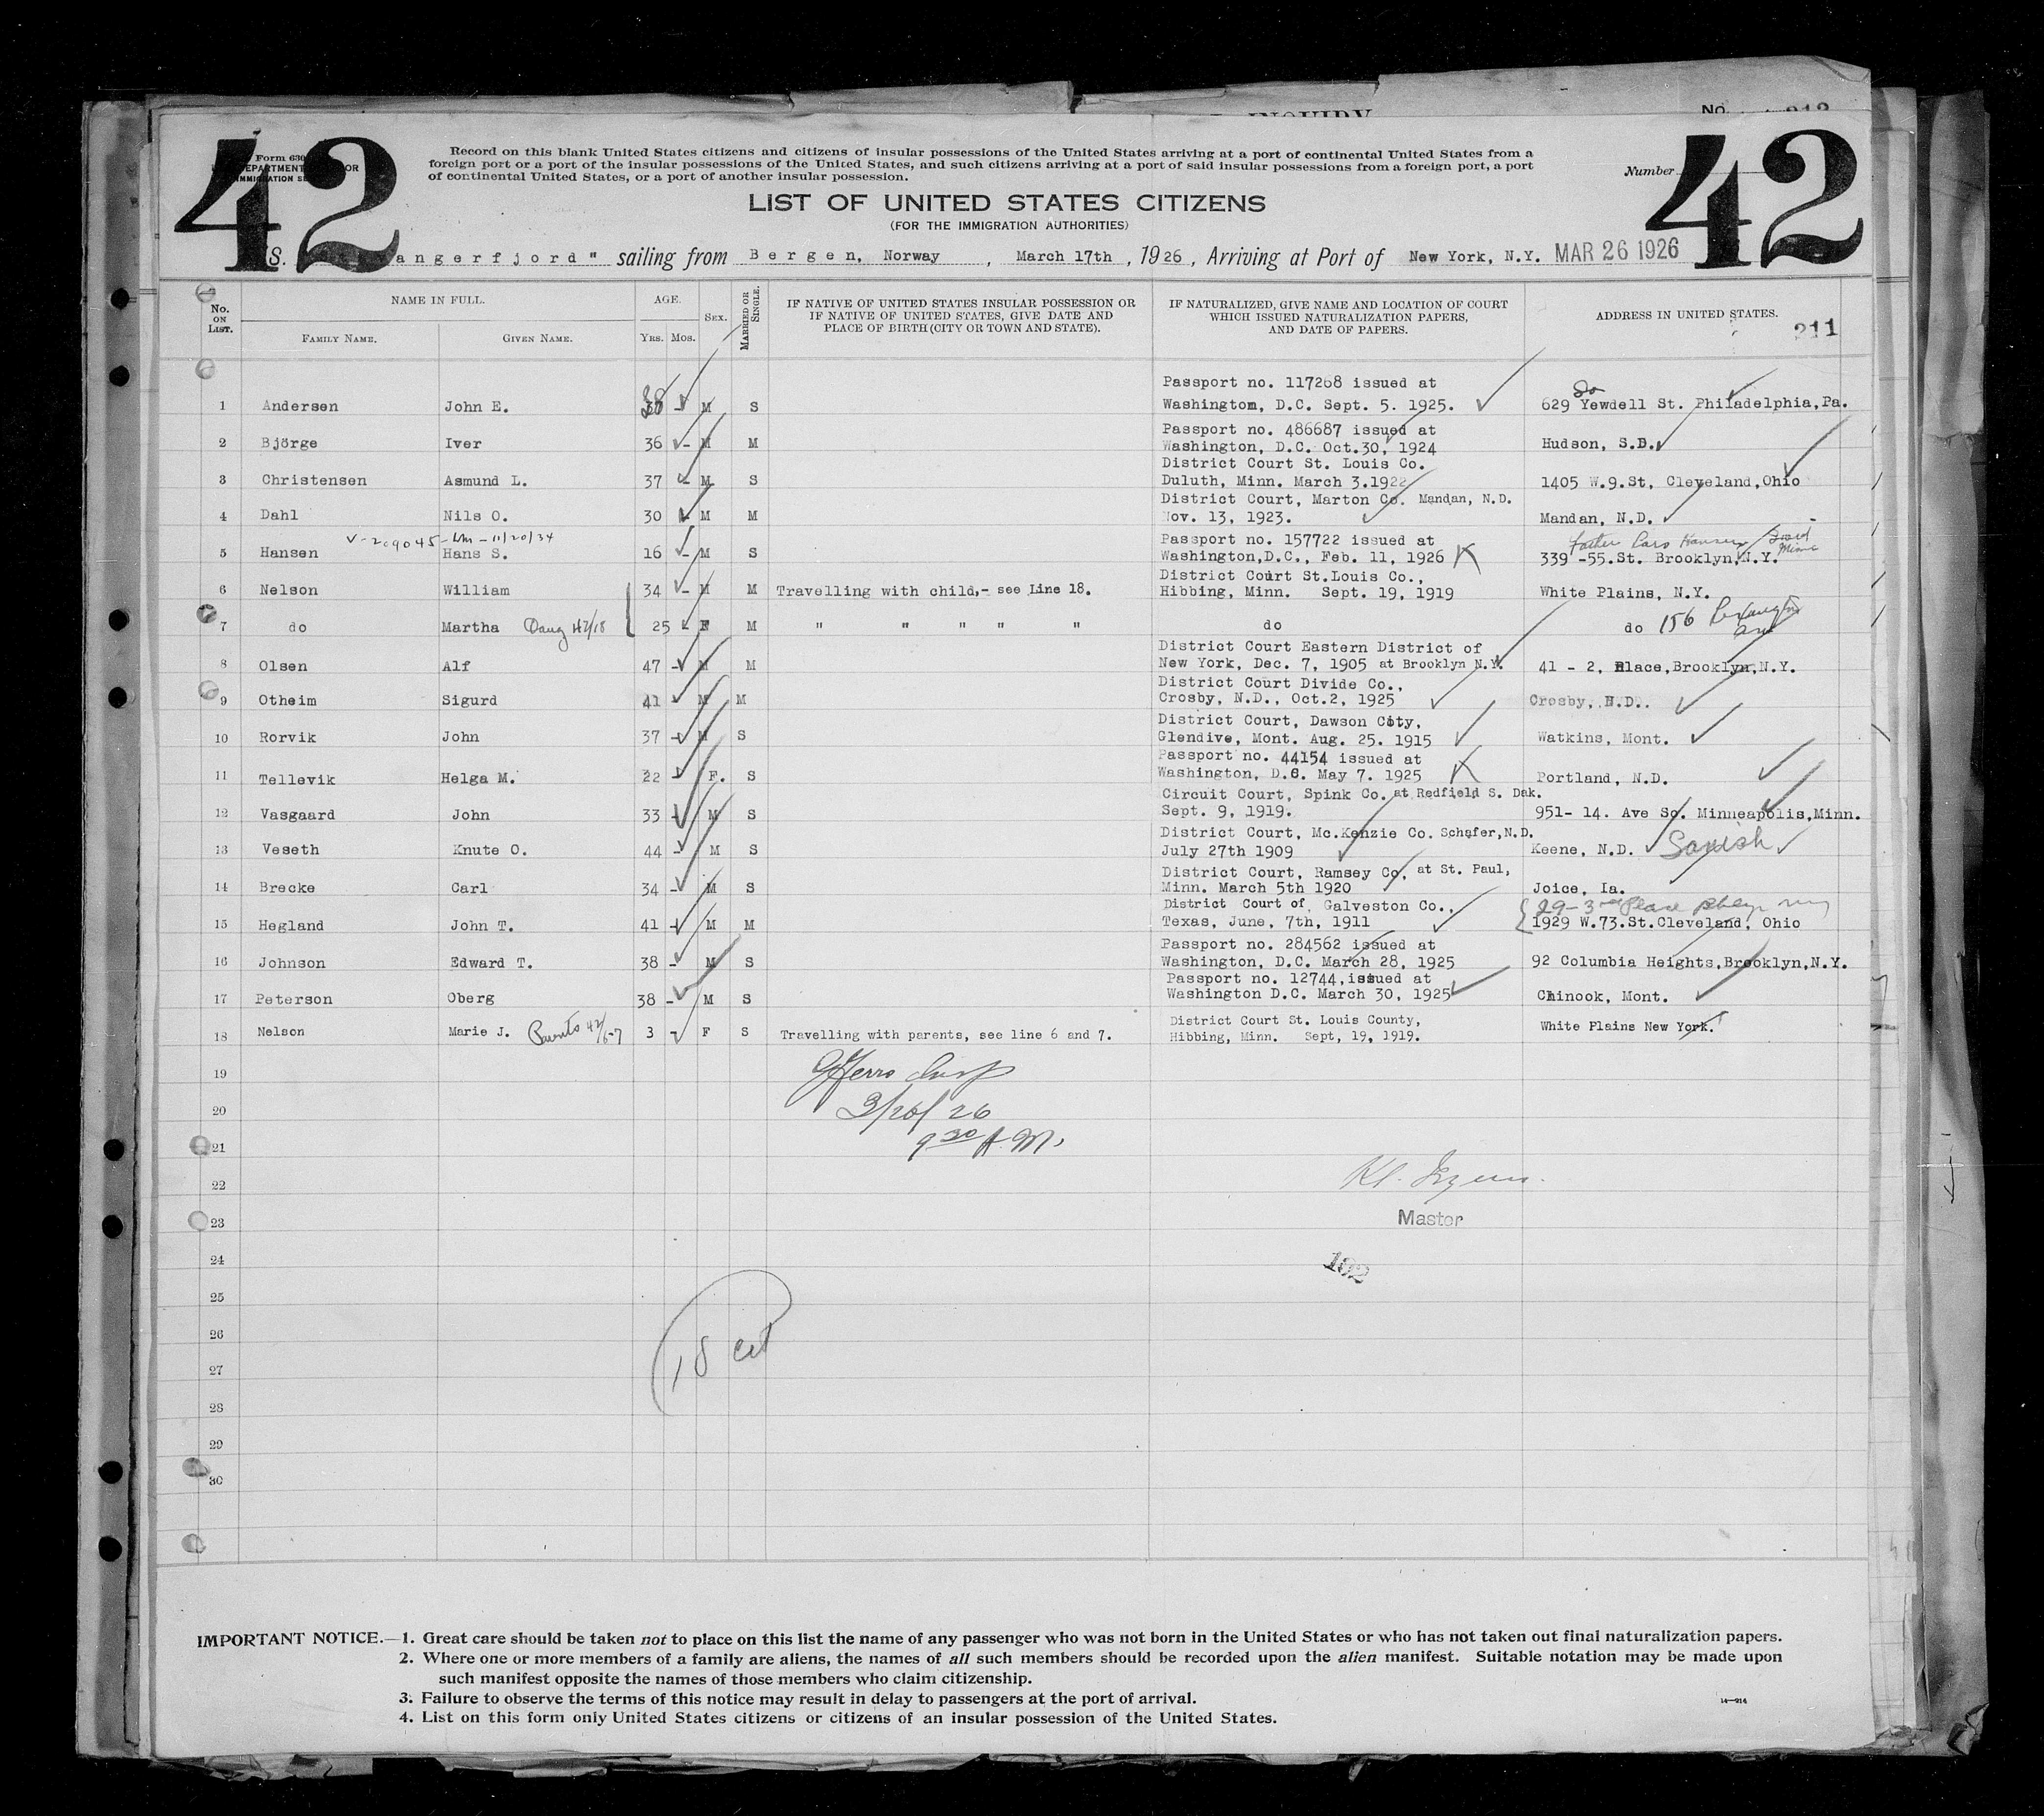 INQUIRY No. 212
42 42
Form 630
IMMIGRATION SE
Record on this blank United States citizens and citizens of insular possessions of the United States arriving at a port of continental United States from a
foreign port or a port of the insular possessions of the United States, and such citizens arriving at a port of said insular possessions from a foreign port, a port
of continental United States, or a port of another insular possession.
Number
LIST OF UNITED STATES CITIZENS
(FOR THE IMMIGRATION AUTHORITIES)
S. angerfjord" sailing from Bergen, Norway, March 17th, 1926, Arriving at Port of New York, N.Y. MAR 26 1926
No. ON LIST. NAME IN FULL. FAMILY NAME. GIVEN NAME. AGE. YRS. MOS. SEX. MARRIED OR SINGLE. IF NATIVE OF UNITED STATES INSULAR POSSESSION OR IF NATIVE OF UNITED STATES, GIVE DATE AND PLACE OF BIRTH (CITY OR TOWN AND STATE). IF NATURALIZED, GIVE NAME AND LOCATION OF COURT WHICH ISSUED NATURALIZATION PAPERS, AND DATE OF PAPERS. ADDRESS IN UNITED STATES.
211
Passport no. 117268 issued at
1 Andersen John E. 38 - M S Washington, D.C. Sept. 5. 1925. 629 So Yewdell St. Philadelphia,Pa.
Passport no. 486687 issued at
2 Björge Iver 36 - M M Washington, D.C. Oct.30, 1924 Hudson, S.D.
District Court St. Louis Co.
3 Christensen Asmund L. 37 - M S Duluth, Minn. March 3.1922 1405 W.9.St, Cleveland,Ohio
District Court, Marton Co. Mandan, N.D.
4 Dahl Nils O. 30 - M M Nov. 13, 1923. Mandan, N.D.
V-209045 - 11/20/34
Passport no. 157722 issued at Father
5 Hansen Hans S. 16 - M S Washington,D.C., Feb. 11, 1926 339 -55.St. Brooklyn,N.Y.
District Court St.Louis Co.,
6 Nelson William 34 - M M Travelling with child,- see Line 18. Hibbing, Minn. Sept. 19, 1919 White Plains, N.Y.
7 do Martha Daug 42/18 25 - F M " " " " " do do 156 Lexington Ave
District Court Eastern District of
8 Olsen Alf 47 - M M New York, Dec. 7, 1905 at Brooklyn N.Y. 41 - 2, Place,Brooklyn,N.Y.
District Court Divide Co.,
9 Otheim Sigurd 41 - M M Crosby, N.D., Oct.2, 1925 Crosby, N.D..
District Court, Dawson City,
10 Rorvik John 37 - M S Glendive, Mont. Aug. 25. 1915 Watkins, Mont.
Passport no. 44154 issued at
11 Tellevik Helga M. 22 - F. S Washington, D.C. May 7. 1925 Portland, N.D.
Circuit Court, Spink Co. at Redfield S. Dak.
12 Vasgaard John 33 - M S Sept. 9, 1919. 951- 14. Ave So. Minneapolis,Minn.
District Court, Mc.Kenzie Co. Schafer,N.D.
13 Veseth Knute O. 44 - M S July 27th 1909 Keene, N.D. Sanish
District Court, Ramsey Co, at St. Paul,
14 Brecke Carl 34 - M S Minn. March 5th 1920 Joice, Ia.
District Court of Galveston Co., 29-3rd Place Bklyn NY
15 Hegland John T. 41 - M M Texas, June, 7th, 1911 1929 W.73.St.Cleveland, Ohio
Passport no. 284562 issued at
16 Johnson Edward T. 38 - M S Washington, D.C. March 28, 1925 92 Columbia Heights,Brooklyn,N.Y.
Passport no. 12744,issued at
17 Peterson Oberg 38 - M S Washington D.C. March 30, 1925 Chinook, Mont.
District Court St. Louis County,
18 Nelson Marie J. Parents 42/6-7 3 - F S Travelling with parents, see line 6 and 7. Hibbing, Minn. Sept, 19, 1919. White Plains New York.
19
20 3/26/26
21 9 30 A.M.
22
23 Master
24 192
25
26
27 18 cit
28
29
30
IMPORTANT NOTICE.—1. Great care should be taken not to place on this list the name of any passenger who was not born in the United States or who has not taken out final naturalization papers.
2. Where one or more members of a family are aliens, the names of all such members should be recorded upon the alien manifest. Suitable notation may be made upon
such manifest opposite the names of those members who claim citizenship.
3. Failure to observe the terms of this notice may result in delay to passengers at the port of arrival.
14—214
4. List on this form only United States citizens or citizens of an insular possession of the United States.